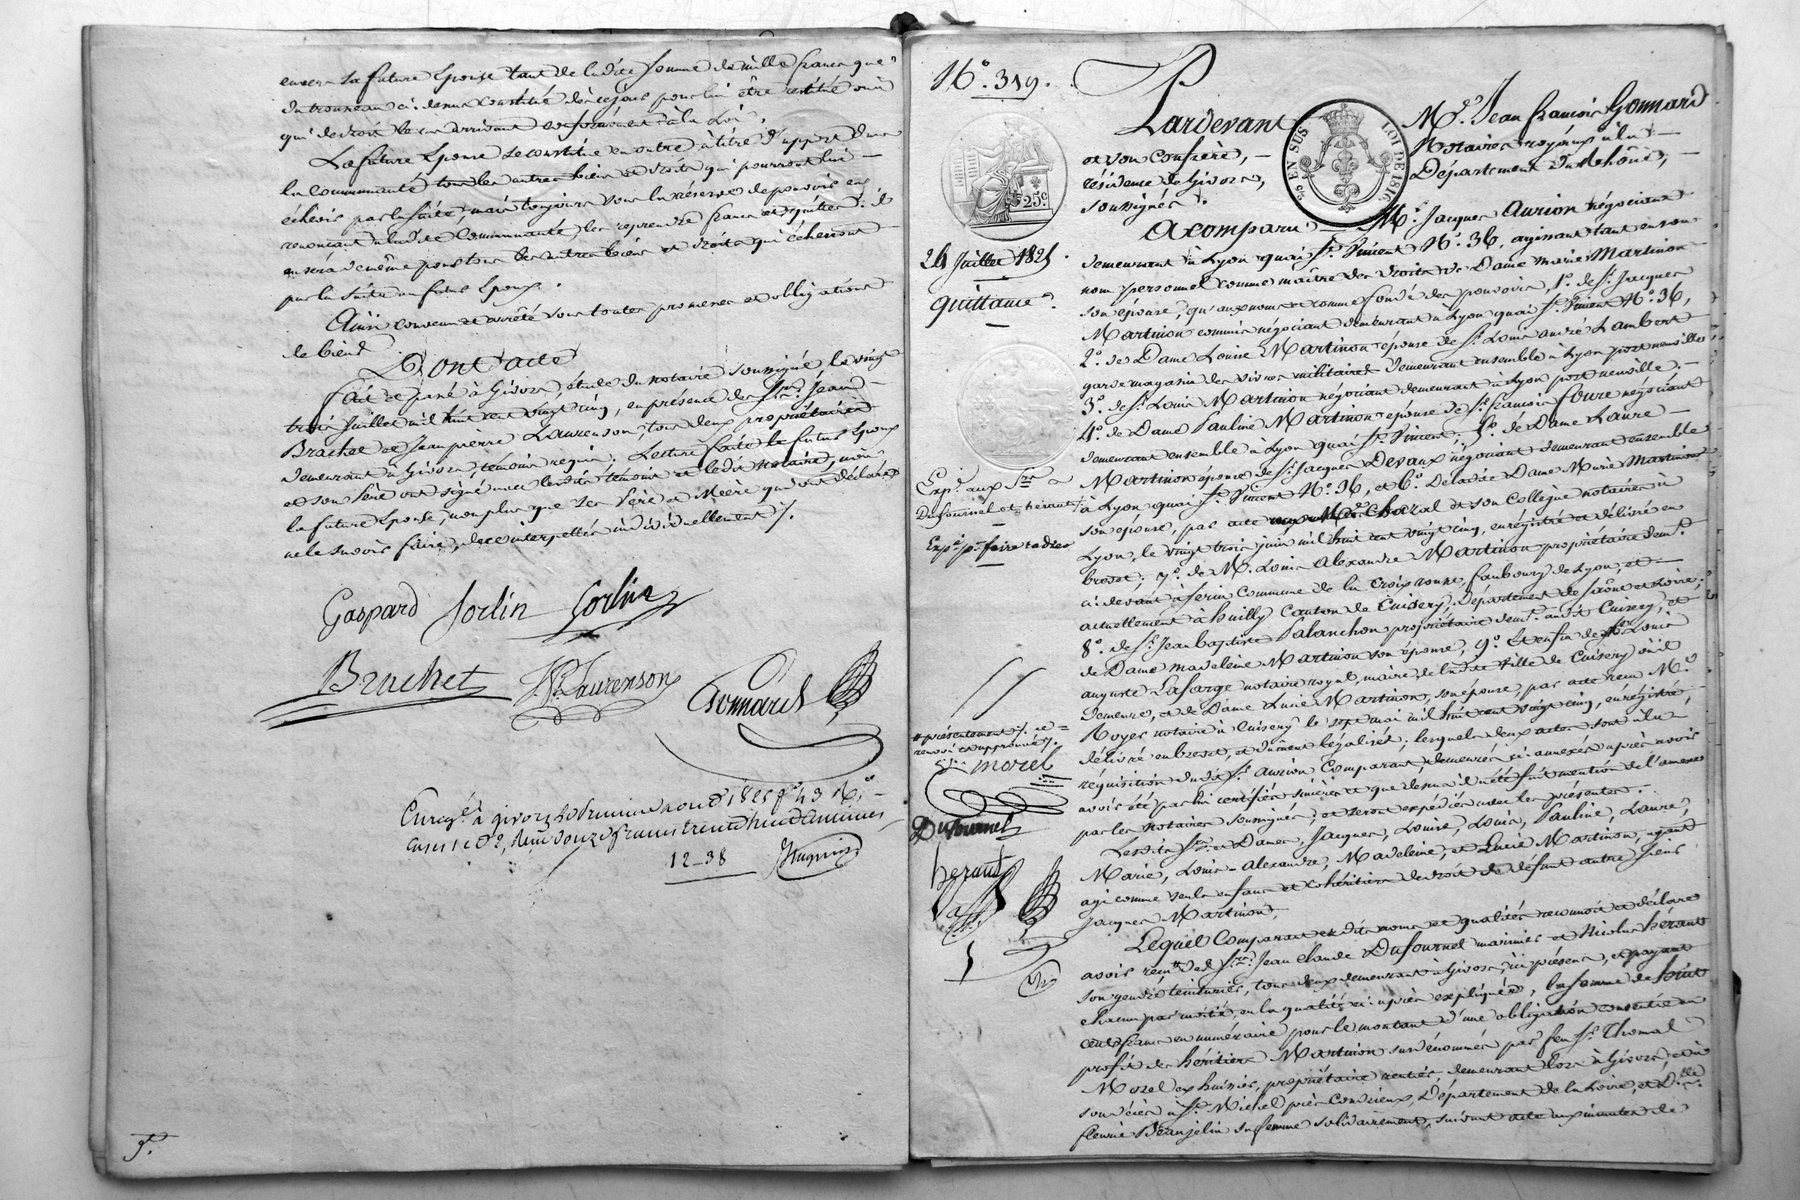 envers sa future Epouse tant de ladite somme de mille francs que
du trousseau ci-dessus constitué dès ce jour pour lui être restitué ou à
qui de droit le cas arrivant conformément à la Loi.
La future Epouse se constitue en outre à titre d'apport dans
la communauté tous les autres biens et droits qui pourront lui
échéoir par la suite, mais toujours sous la réserve de pouvoir en
renonçant à ladite communauté les reprendre francs et quittes; il
en sera de même pour tous les autres biens et droits qui écherront
par la suite au futur Epoux.
Ainsi convenu et arrêté sous toutes promesses et obligations
de biens
Dont acte
fait et passé à Givors, étude du notaire soussigné, le vingt
trois juillet mil huit cent vingt cinq, en présence des Srs. Jean
Brachet et Jean pierre Laurenson, tous deux propriétaires
demeurant à Givors, témoins requis. Lecture faite le futur Epoux
et son père ont signé avec lesdits témoins et ledit notaire, non
la future Epouse, non plus que ses Père et Mère qui ont déclaré
ne le savoir faire, de ce interpellés individuellement /.
Gaspard Sorlin Sorlin
Brachet J. P. Laurenson Gonnard
Enregé. à givors le premier aout 1825 fo. 43 Ro.
cases 1 et 2, Reçu douze francs trente huit centimes
12-38 Hugnin
No. 319.
25c.
24 Juillet 1825.
Quittance
Expn. aux Srs.
Dufournel et hérault
Expn. pr. faire radier
présentement /. ce
renvoi est approuvé /.
morel
Dufournel
herault
Pardevant Me. Jean françois Gonnard
et son Confrère, Notaires royaux à la
résidence de Givors, Département du Rhône,
soussignés.
2e EN SUS LOI DE 1816
A comparu Mr. Jacques Aurion négociant
demeurant à Lyon quai St. Vincent No. 36, agissant tant en son
nom personnel comme maître des droits de Dame Marie Martinon
son épouse, qu'aux noms et comme fondé des pouvoirs, 1o. de Sr. Jacques
Martinon commis négociant demeurant à Lyon quai St. Vincent No. 36,
2o. de Dame Louise Martinon épouse de Sr. Louis andré Lambert
garde magasin des vivres militaires demeurant ensemble à Lyon port neuville
3o. de Sr. Louis Martinon négociant demeurant à Lyon port neuville,
4o. de Dame Pauline Martinon épouse de Sr. françois foure négociant
demeurant ensemble à Lyon quai St. Vincent, 5o. de Dame Laure
Martinon épouse de Sr. Jacques Devaux négociant demeurant ensemble
à Lyon quai St. Vincent No. 36, et 6o. de ladite Dame Marie Martinon
son épouse, par acte reçu Me. Charal et son Collègue notaires à
Lyon, le vingt trois juin mil huit cent vingt cinq, enregistré et délivré en
brevet; 7o. de M. Louis Alexandre Martinon propriétaire demt.
ci devant à Serin Commune de la Croix rousse, faubourg de Lyon, et
actuellement à huilly Canton de Cuisery, Département de saône et Loire;
8o. de Sr. Jean baptiste Palanchon propriétaire demt. audit Cuisery, et
de Dame madeleine Martinon son épouse, 9o. Et enfin de Mr. Louis
auguste Lafarge notaire royal, maire de ladite Ville de Cuisery où il
demeure, et de Dame Lucie Martinon, son épouse, par acte reçu Me.
Royer notaire à Cuisery le sept mai mil huit cent vingt cinq, enregistré
délivré en brevet, et dûment légalisé; lesquels deux actes sont à la
réquisition dudit Sr. Aurion Comparant, demeurés ci annexés après avoir
avoir été par lui certifiés sincères et que dessus il a été fait mention de l'annexe
par les Notaires soussignés, et seront expédiés avec les présentes.
Lesdits Srs. et Dames, Jacques, Louise, Louis, Pauline, Laure,
Marie, Louis-Alexandre, Madeleine, et Lucie Martinon, ayant
agi comme seuls enfans et cohéritiers de droit de défunt autre Sieur
Jacques Martinon.
Lequel Comparant esdits noms et qualités reconnoit et déclare
avoir reçu des Srs. Jean Claude Dufournel marinier et Nicolas hérault
son gendre teinturier, tous deux demeurant à Givors, ici présens, et payant
chacun par moitié, en la qualité ci-après expliquée, la somme de huit
cents francs en numéraire pour le montant d'une obligation consentie au
profit des héritiers Martinon surdénommés par feu Sr. Thomas
Morel ex huissier, propriétaire rentier, demeurant lors à Givors, et à
son décès à St. Michel près Condrieux, Département de la Loire, et Dlle.
fleurie Beaujelin sa femme solidairement, suivant acte aux minutes de